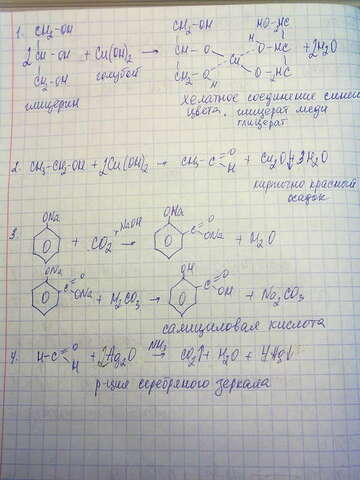 1. CH₂-OH CH₂-OH HO-H₂C
2CH-OH + Cu(OH)₂ → CH-O Cu H O-HC + 2H₂O
CH₂-OH голубой CH₂-O H O-H₂C
глицерин Хелатное соединение синего
цвета. глицерат меди
глицерат
2. CH₃-CH₂-OH + 2Cu(OH)₂ → CH₃-C=O H + Cu₂O↓ + 3H₂O
кирпично красный
осадок
3. ONa + CO₂ + NaOH → ONa C=O ONa + H₂O
ONa C=O ONa + H₂CO₃ → OH C=O OH + Na₂CO₃
салициловая кислота
4. H-C=O H + 2Ag₂O NH₃ → CO₂↑ + H₂O + 4Ag↓
р-ция серебряного зеркала